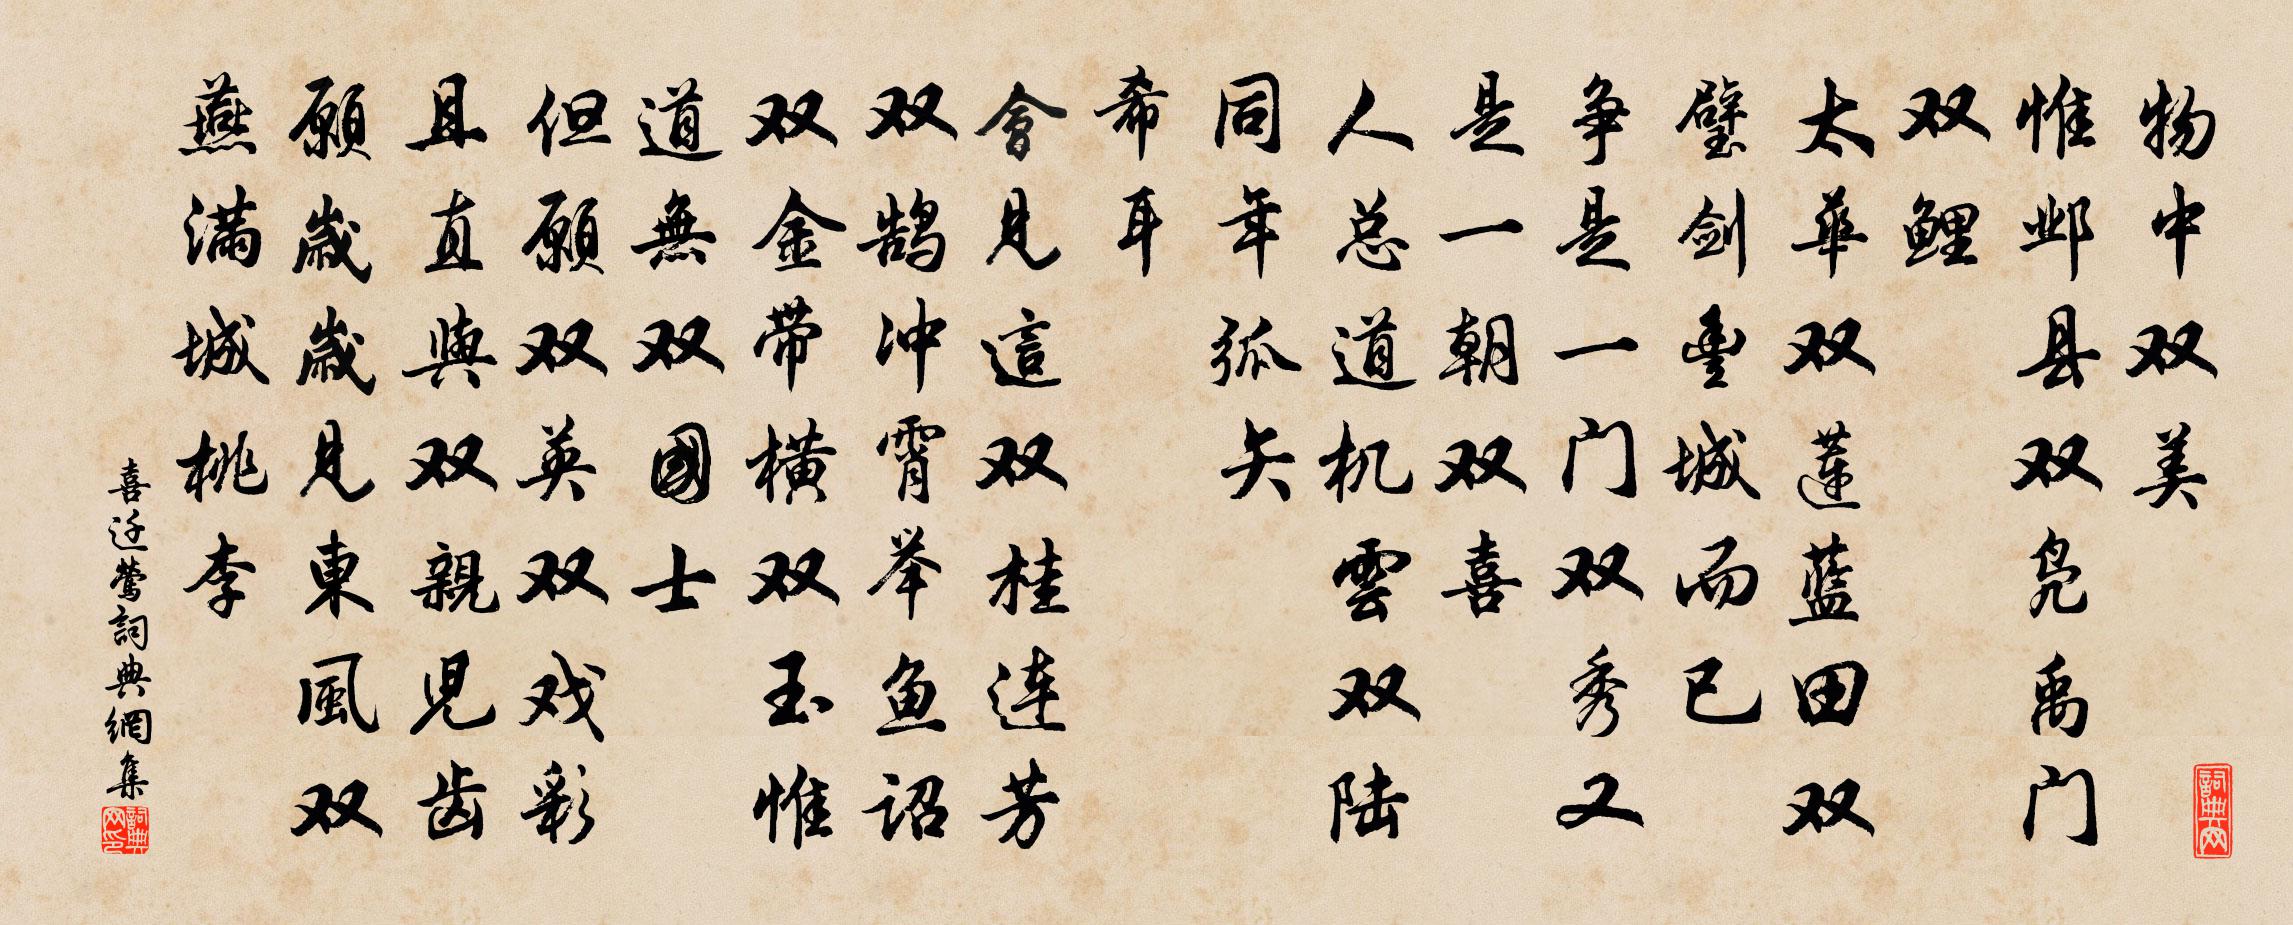 物中双美
惟邺县双凫禹门
双鲤
太華双蓮蓝田双
璧剑豐城而已
争是一门双秀又
是一朝双喜
人总道机雲双陆
同年弧矢
希耳
會見這双桂连芳
双鹄冲霄举鱼诏
双金带横双玉惟
道無双國士
但願双英双戏彩
且直與双親儿齿
願歲歲見東風双
燕满城桃李
喜迁莺詞典網集
詞典网
詞典网印